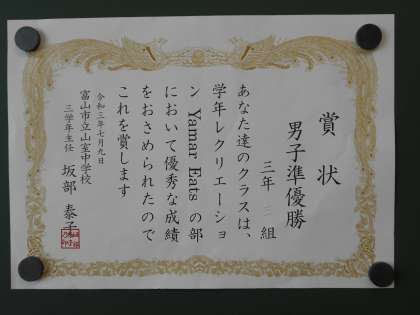 賞状
男子準優勝
三年 組
あなた達のクラスは、
学年レクリエーショ
ン Yamar Eats の部
において優秀な成績
をおさめられたので
これを賞します
令和三年七月九日
富山市立山室中学校
三学年主任 坂部 泰子